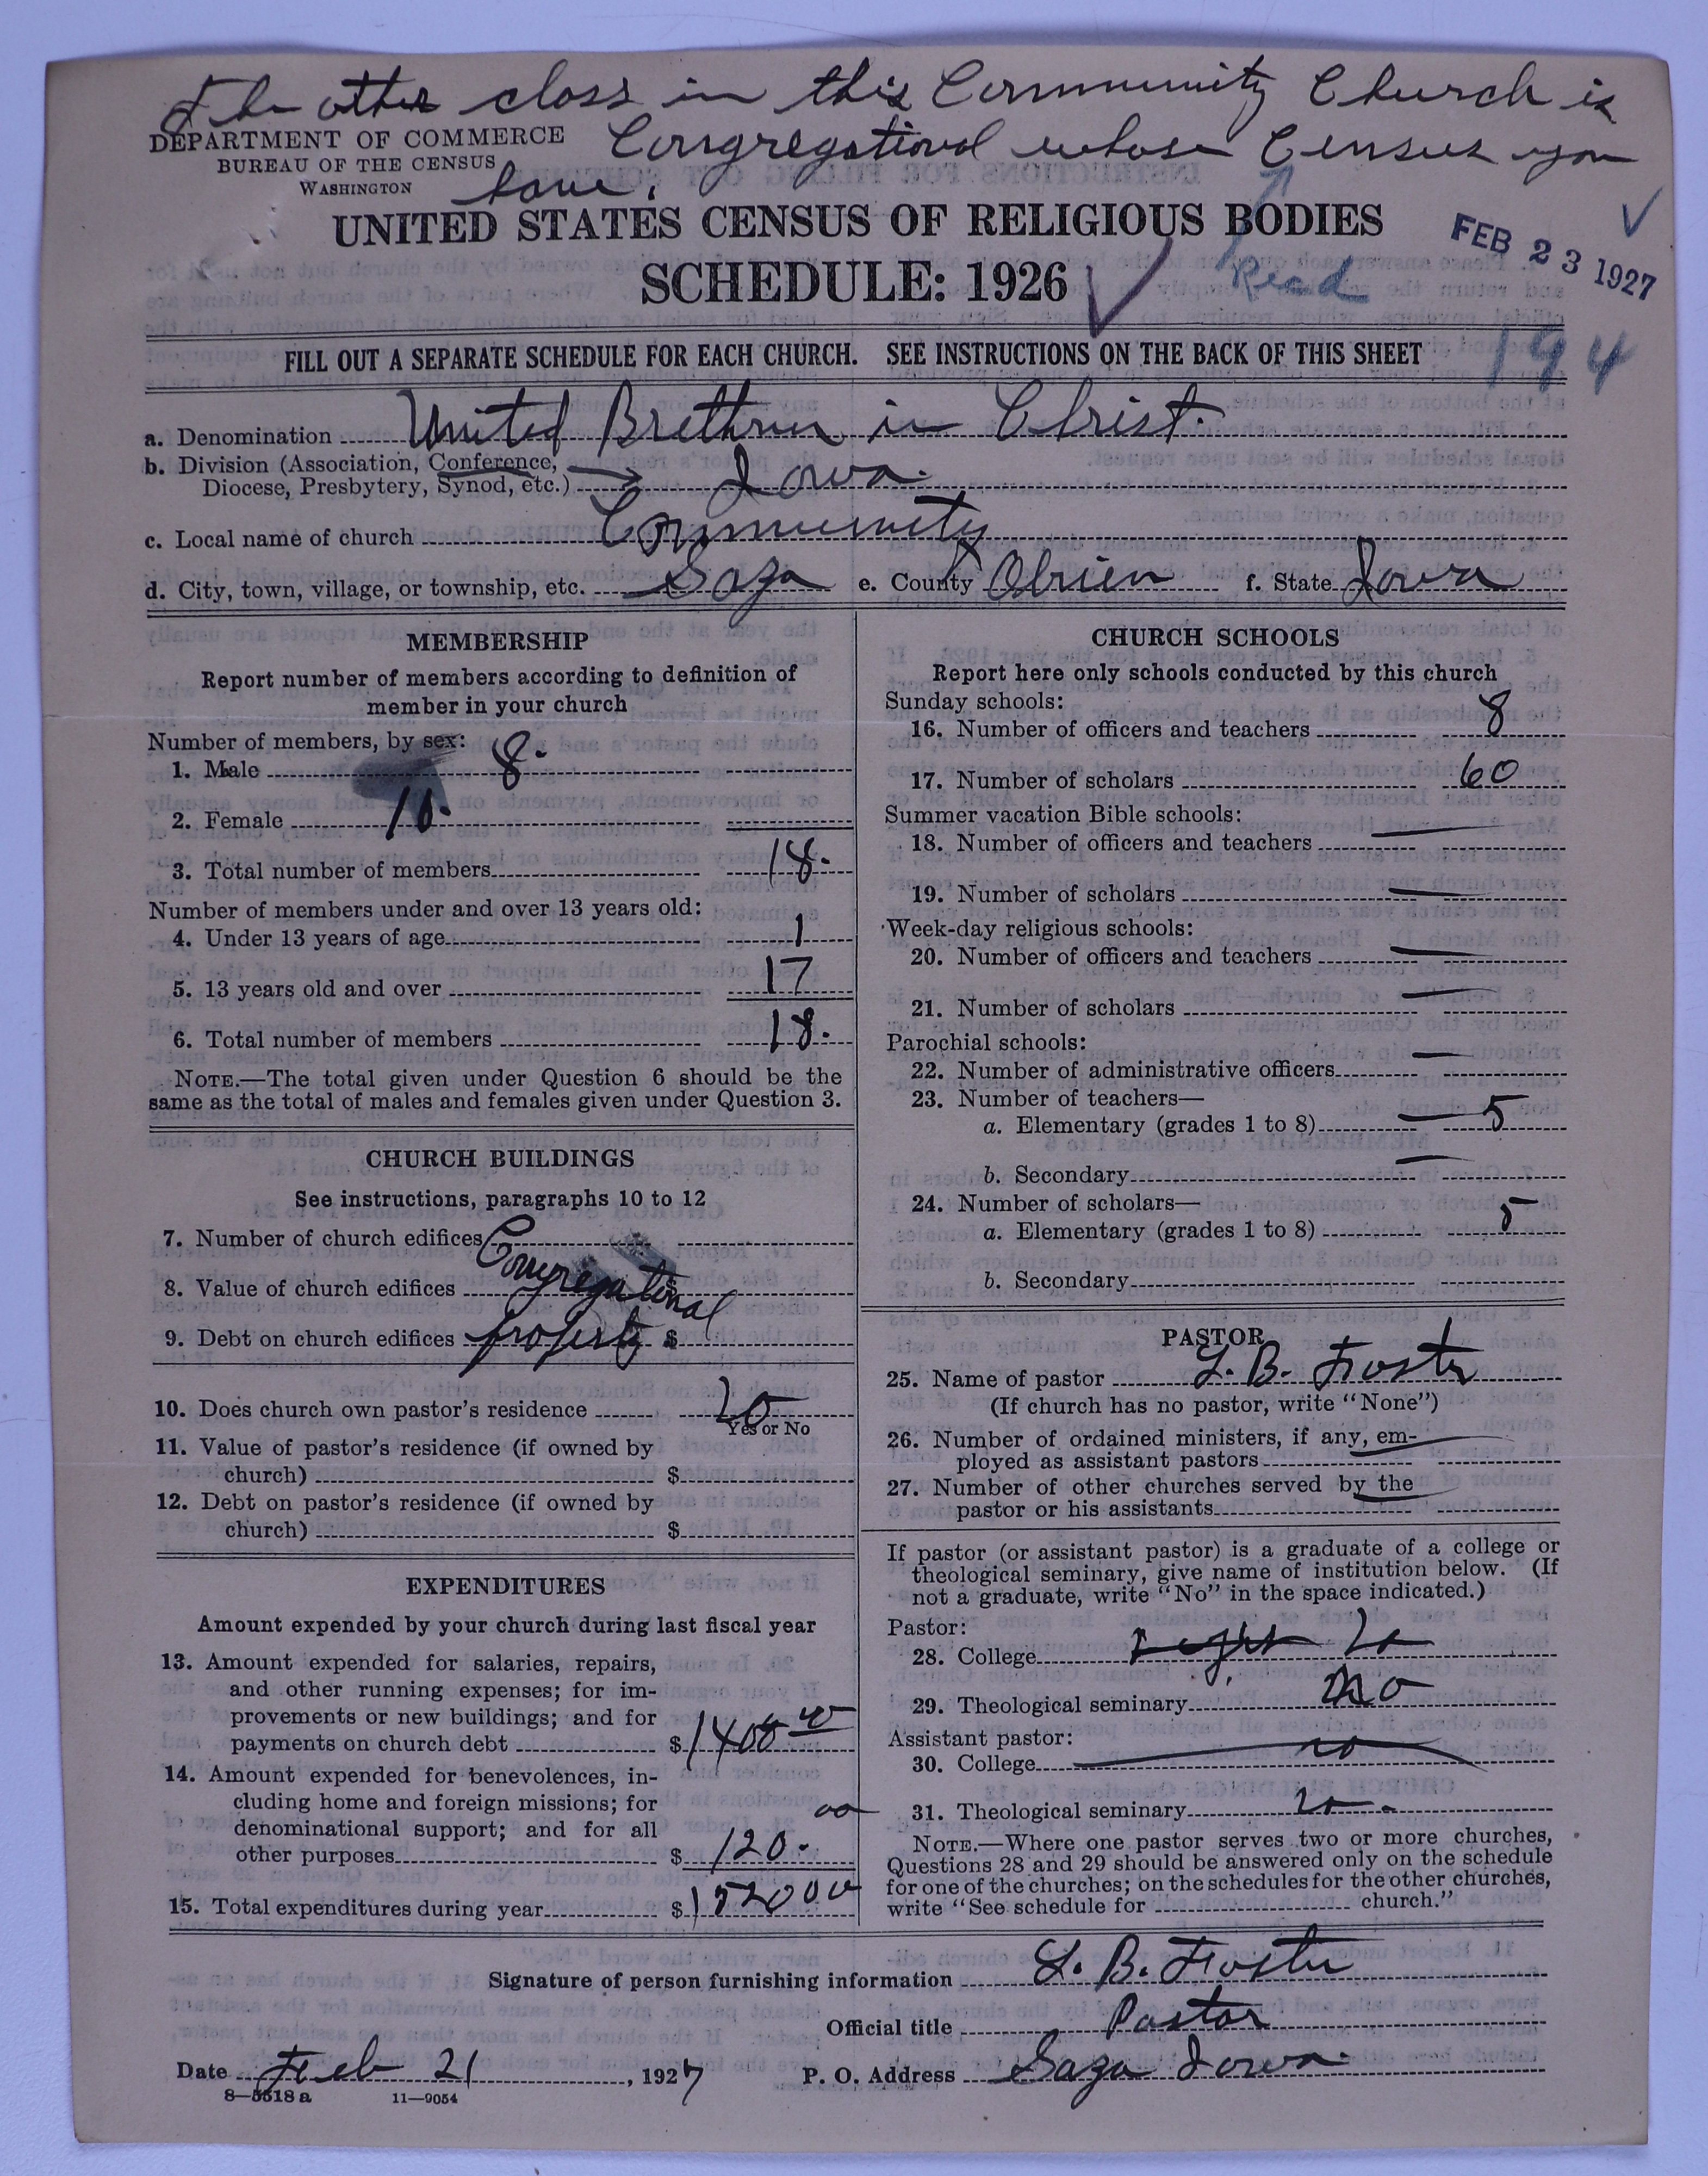 The other class in this Community Church is
Congregational whose Census you
have.
DEPARTMENT OF COMMERCE
BUREAU OF THE CENSUS
WASHINGTON
UNITED STATES CENSUS OF RELIGIOUS BODIES
SCHEDULE: 1926
Read
FEB 23 1927
194
FILL OUT A SEPARATE SCHEDULE FOR EACH CHURCH. SEE INSTRUCTIONS ON THE BACK OF THIS SHEET
a. Denomination United Brethren in Christ.
b. Division (Association, Conference,
Diocese, Presbytery, Synod, etc.) Iowa.
c. Local name of church Community
d. City, town, village, or township, etc. Gaza e. County Obrien f. State Iowa
MEMBERSHIP
Report number of members according to definition of
member in your church
Number of members, by sex:
1. Male 8.
2. Female 10.
3. Total number of members 18.
Number of members under and over 13 years old:
4. Under 13 years of age 1
5. 13 years old and over 17
6. Total number of members 18.
NOTE.—The total given under Question 6 should be the
same as the total of males and females given under Question 3.
CHURCH BUILDINGS
See instructions, paragraphs 10 to 12
7. Number of church edifices Congregational
8. Value of church edifices $
9. Debt on church edifices property $
10. Does church own pastor's residence No
Yes or No
11. Value of pastor's residence (if owned by
church) $
12. Debt on pastor's residence (if owned by
church) $
EXPENDITURES
Amount expended by your church during last fiscal year
13. Amount expended for salaries, repairs,
and other running expenses; for im-
provements or new buildings; and for
payments on church debt $1400 00
14. Amount expended for benevolences, in-
cluding home and foreign missions; for
denominational support; and for all
other purposes $ 120. 00
15. Total expenditures during year $1520 00
CHURCH SCHOOLS
Report here only schools conducted by this church
Sunday schools:
16. Number of officers and teachers 8
17. Number of scholars 60
Summer vacation Bible schools:
18. Number of officers and teachers —
19. Number of scholars —
Week-day religious schools:
20. Number of officers and teachers —
21. Number of scholars —
Parochial schools:
22. Number of administrative officers —
23. Number of teachers—
a. Elementary (grades 1 to 8) — 5
b. Secondary —
24. Number of scholars—
a. Elementary (grades 1 to 8) 5
b. Secondary
PASTOR
25. Name of pastor L. B. Foster
(If church has no pastor, write "None")
26. Number of ordained ministers, if any, em-
ployed as assistant pastors —
27. Number of other churches served by the
pastor or his assistants —
If pastor (or assistant pastor) is a graduate of a college or
theological seminary, give name of institution below. (If
not a graduate, write "No" in the space indicated.)
Pastor:
28. College No
29. Theological seminary No
Assistant pastor:
30. College no
31. Theological seminary no.
NOTE.—Where one pastor serves two or more churches,
Questions 28 and 29 should be answered only on the schedule
for one of the churches; on the schedules for the other churches,
write "See schedule for church."
Signature of person furnishing information L. B. Foster
Official title Pastor
Date Feb 21, 1927 P. O. Address Gaza Iowa.
8—5518 a 11—9054